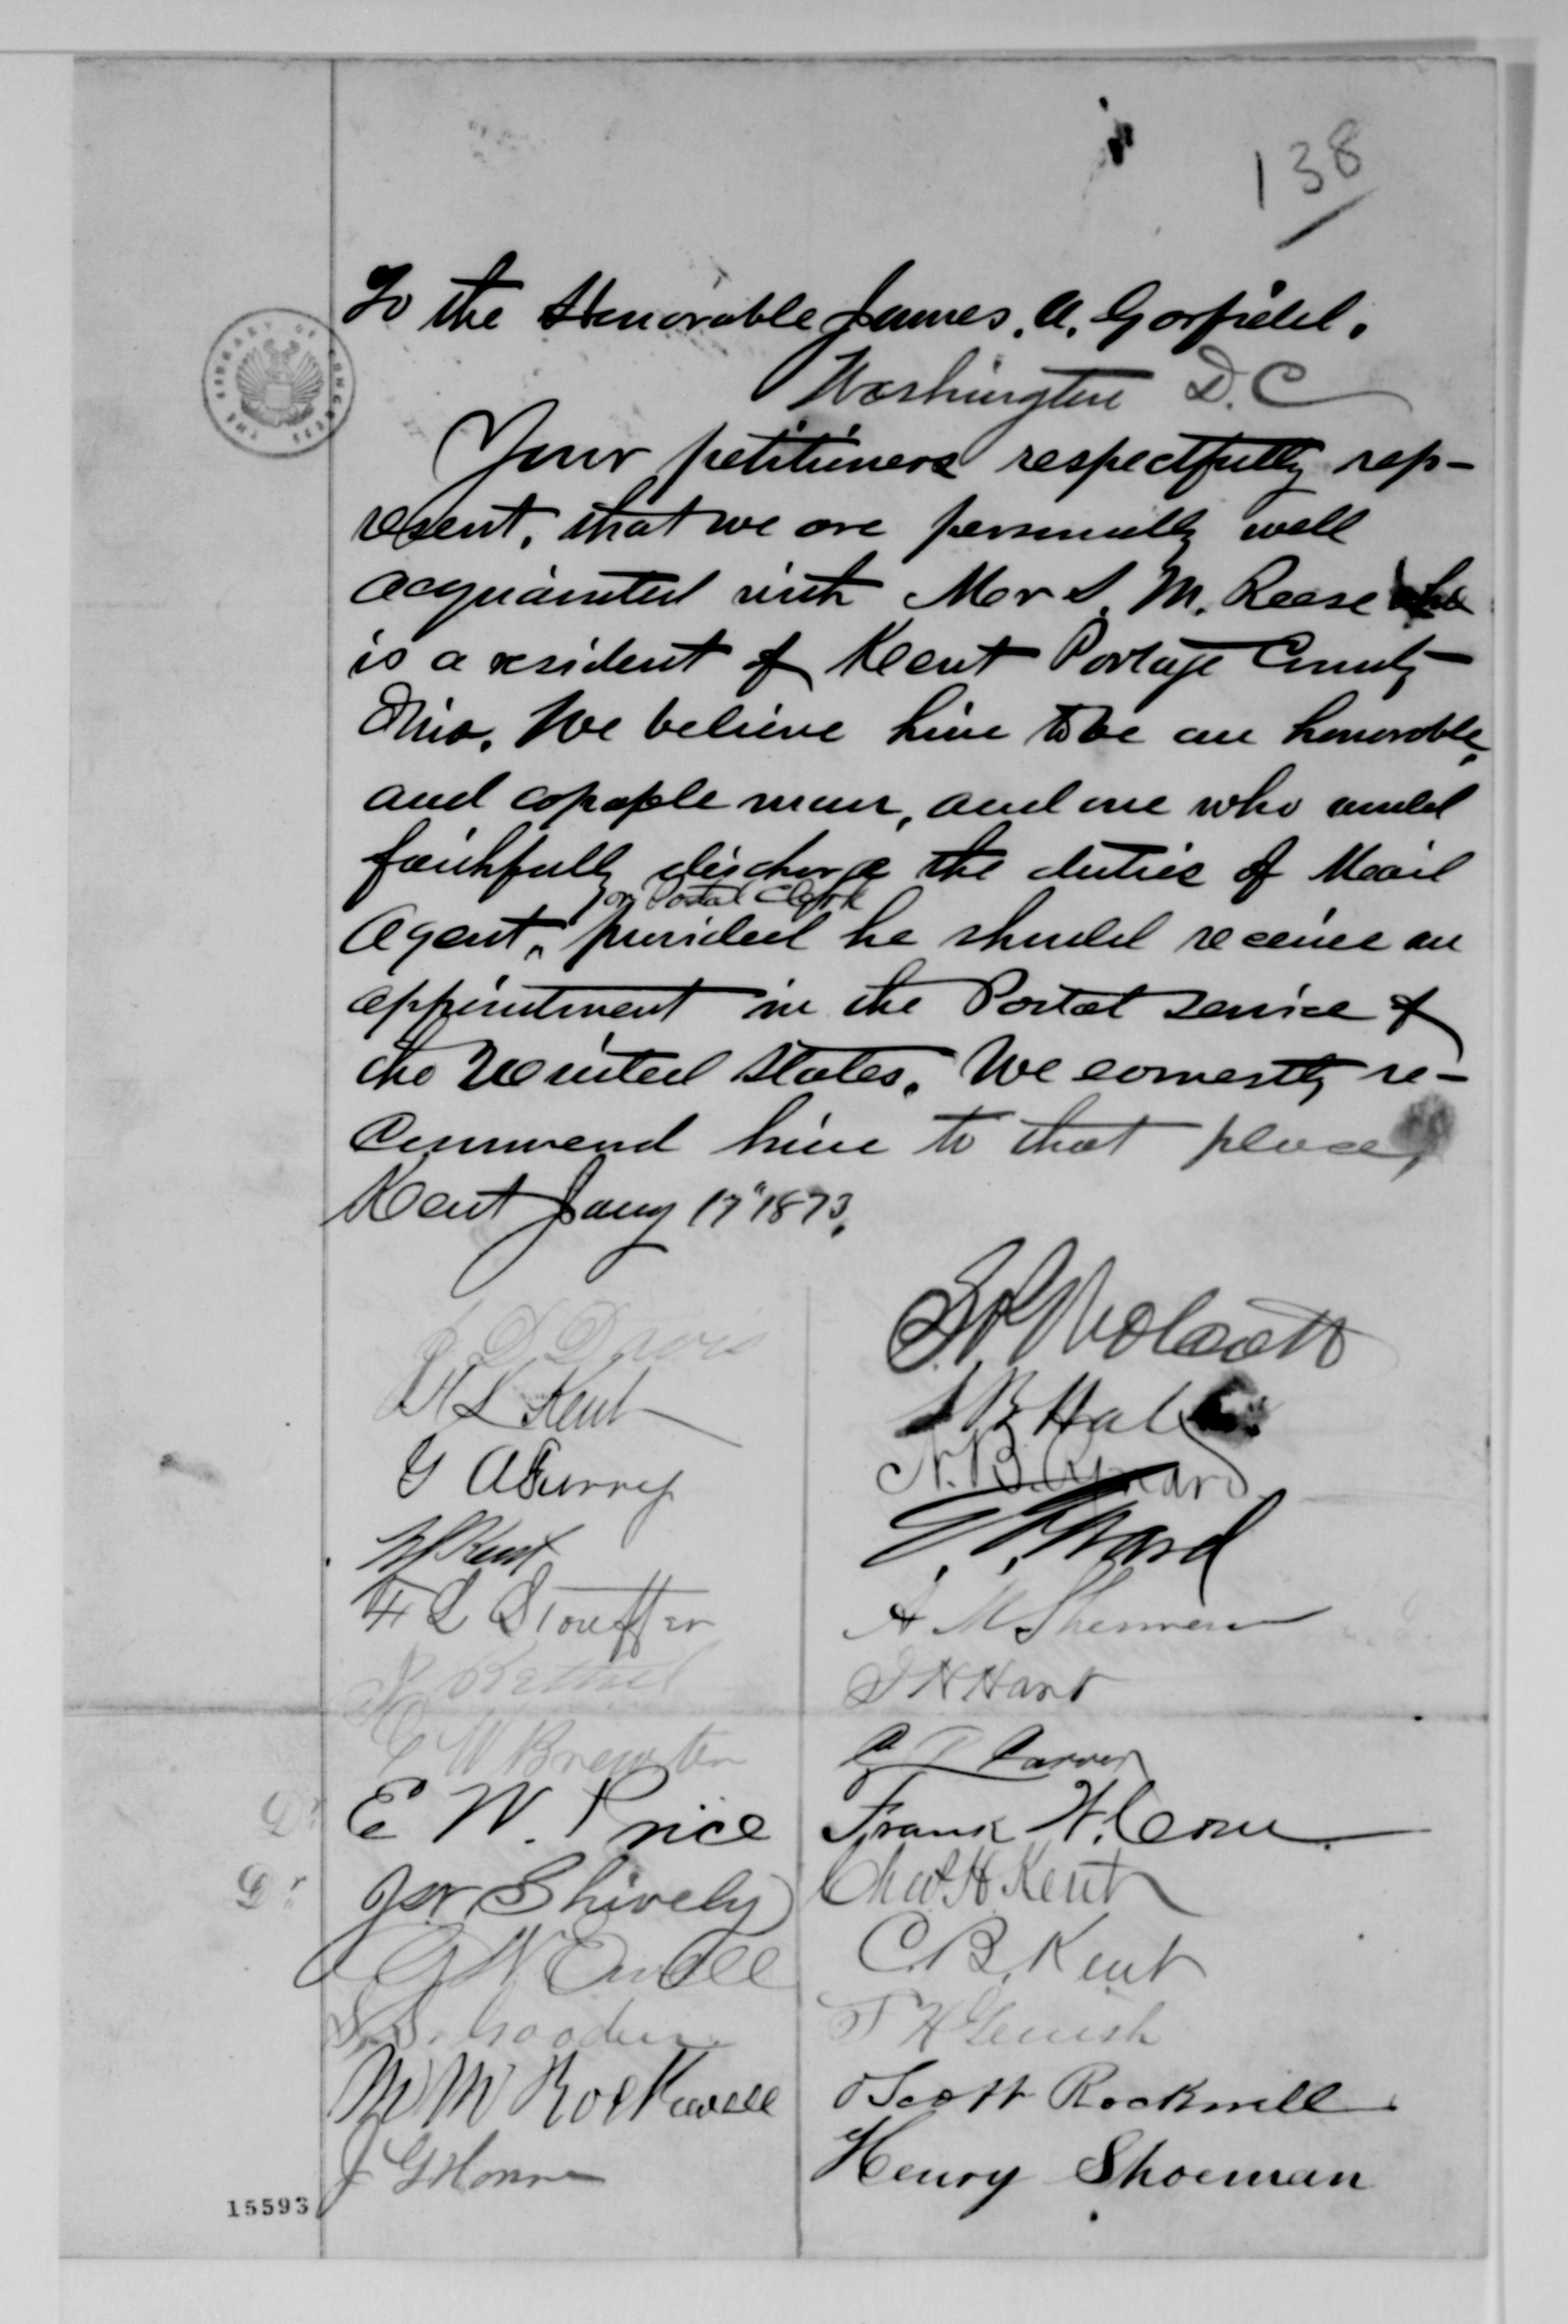 138
To the Honorable James. A. Garfield.
Washington D.C
Your petitioners respectfully rep-
resent, that we are personally well
acquainted with Mer S. M. Reese who
is a resident of Kent Portage County
Ohio. We believe him to be an honorable,
and capable man, and one who would
faithfully discharge the duties of Mail
or Postal Clerk
Agent, provided he should receive an
appointment in the Postal service of
the United States. We earnestly re-
commend him to that place,
Kent Jany 17" 1873.
D Davis
H L Kent
G A Furry
Kent
F L Stouffer
E W Brewster
Dr E W. Price
Dr Shively
G W
S. S.
W W Rockwell
J G
S P Wolcott
Hall
N. B.
Ward
A M Sherman
J H Hart
Frank W. Cone
Chas H Kent
C. B. Kent
F H
Scott Rockwell
Henry Shoeman
THE LIBRARY OF CONGRESS
15593